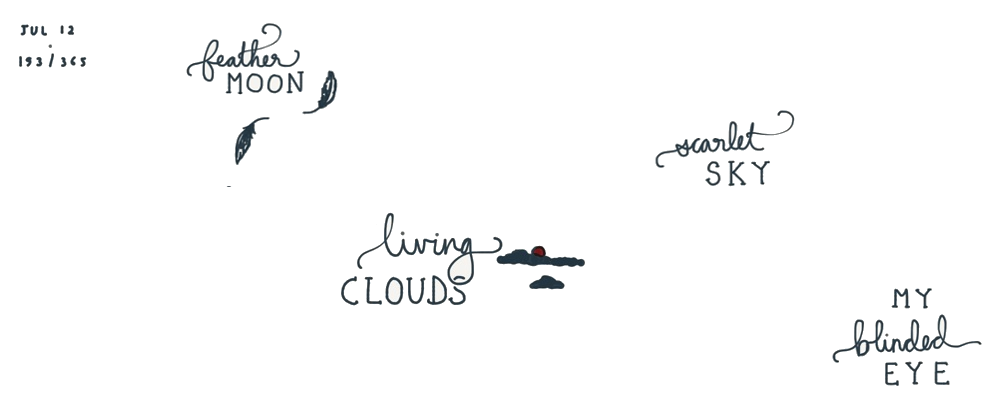 JUL 12
193/365
feather
MOON
scarlet
SKY
living
CLOUDS
MY
blinded
EYE